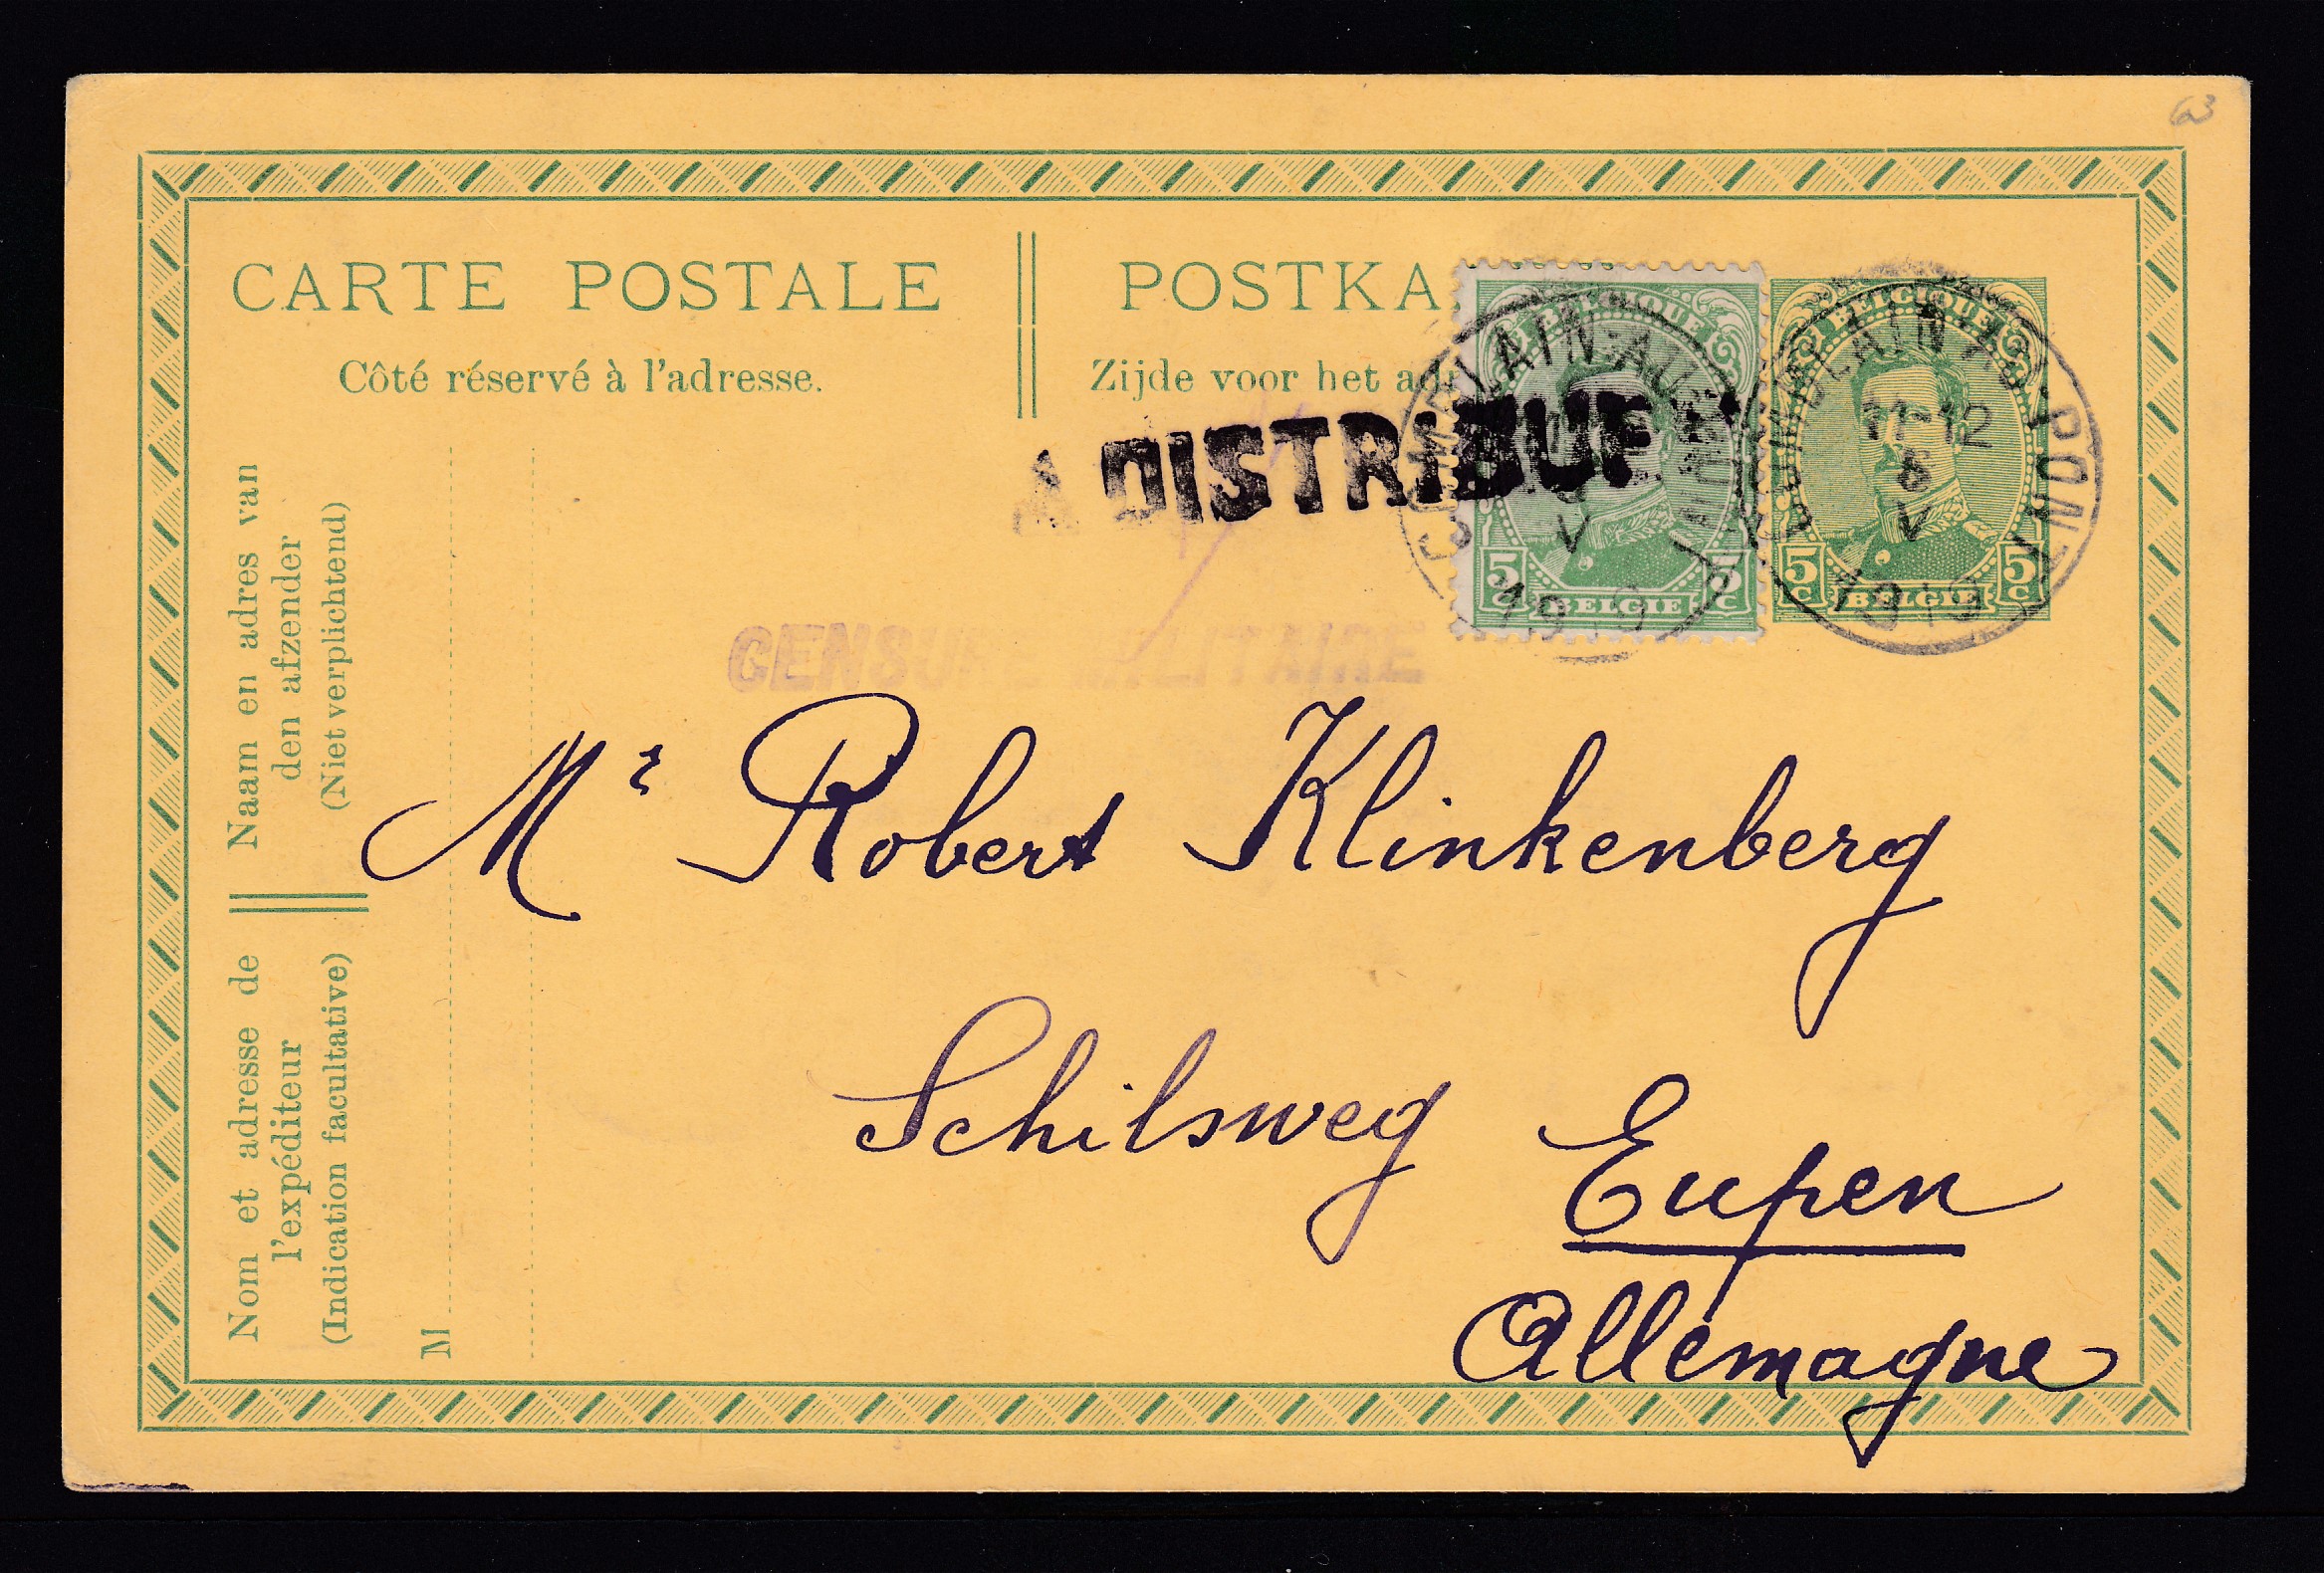 63
CARTE POSTALE
Côté réservé à l'adresse.
POSTKA
Zijde voor het ad
BELGIQUE
5c BELGIE 5c
BELGIQUE
5c BELGIE 5c
COMBLAIN-AU-PONT
V
1919
COMBLAIN-AU-PONT
11-12
6
V
1919
A DISTRIBUE
CENSURE MILITAIRE
Naam en adres van
den afzender
(Niet verplichtend)
Nom et adresse de
l'expéditeur
(Indication facultative)
M
Mr Robert Klinkenberg
Schilsweg Eupen
Allemagne